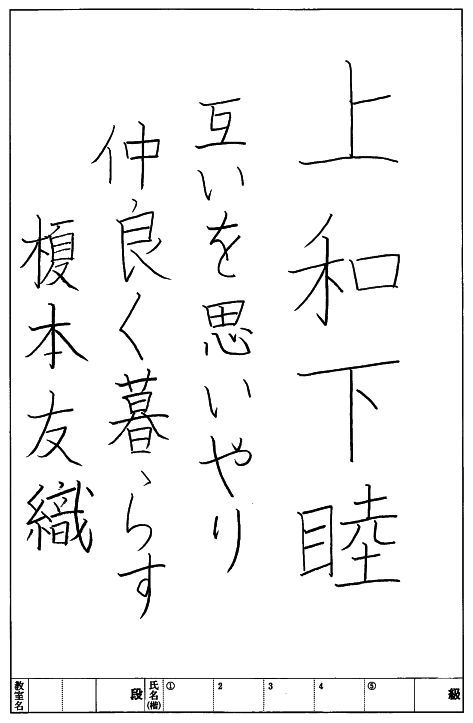 上和下睦
互いを思いやり
仲良く暮らす
榎本友織
教室名 段 氏名(楷) ① 2 3 4 ⑤ 級